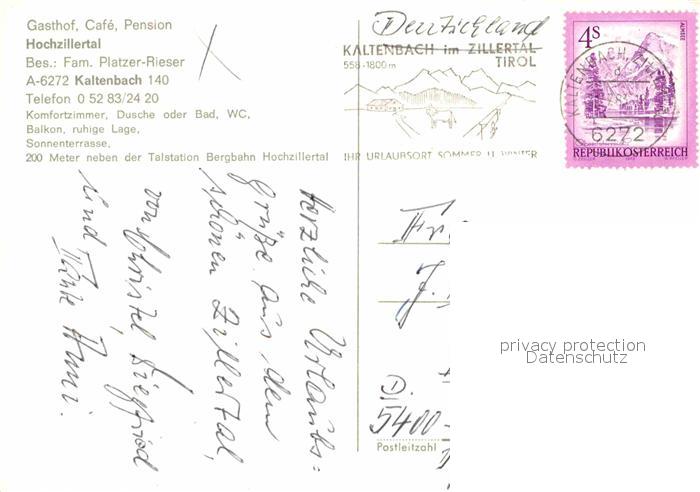 Gasthof, Café, Pension
Hochzillertal
Bes.: Fam. Platzer-Rieser
A-6272 Kaltenbach 140
Telefon 0 52 83/24 20
Komfortzimmer, Dusche oder Bad, WC,
Balkon, ruhige Lage,
Sonnenterrasse,
200 Meter neben der Talstation Bergbahn Hochzillertal
Deutschland
KALTENBACH im ZILLERTAL
558-1800m TIROL
IHR URLAUBSORT SOMMER U. WINTER
4S
ALMSEE
KALTENBACH, ZILLERTAL
6272
REPUBLIK ÖSTERREICH
Herzliche Urlaubs=
grüße aus dem
schönen Zillertal,
von Christel, Siegfried
und Tante Anni.
J.
D.
5400
Postleitzahl
privacy protection
Datenschutz